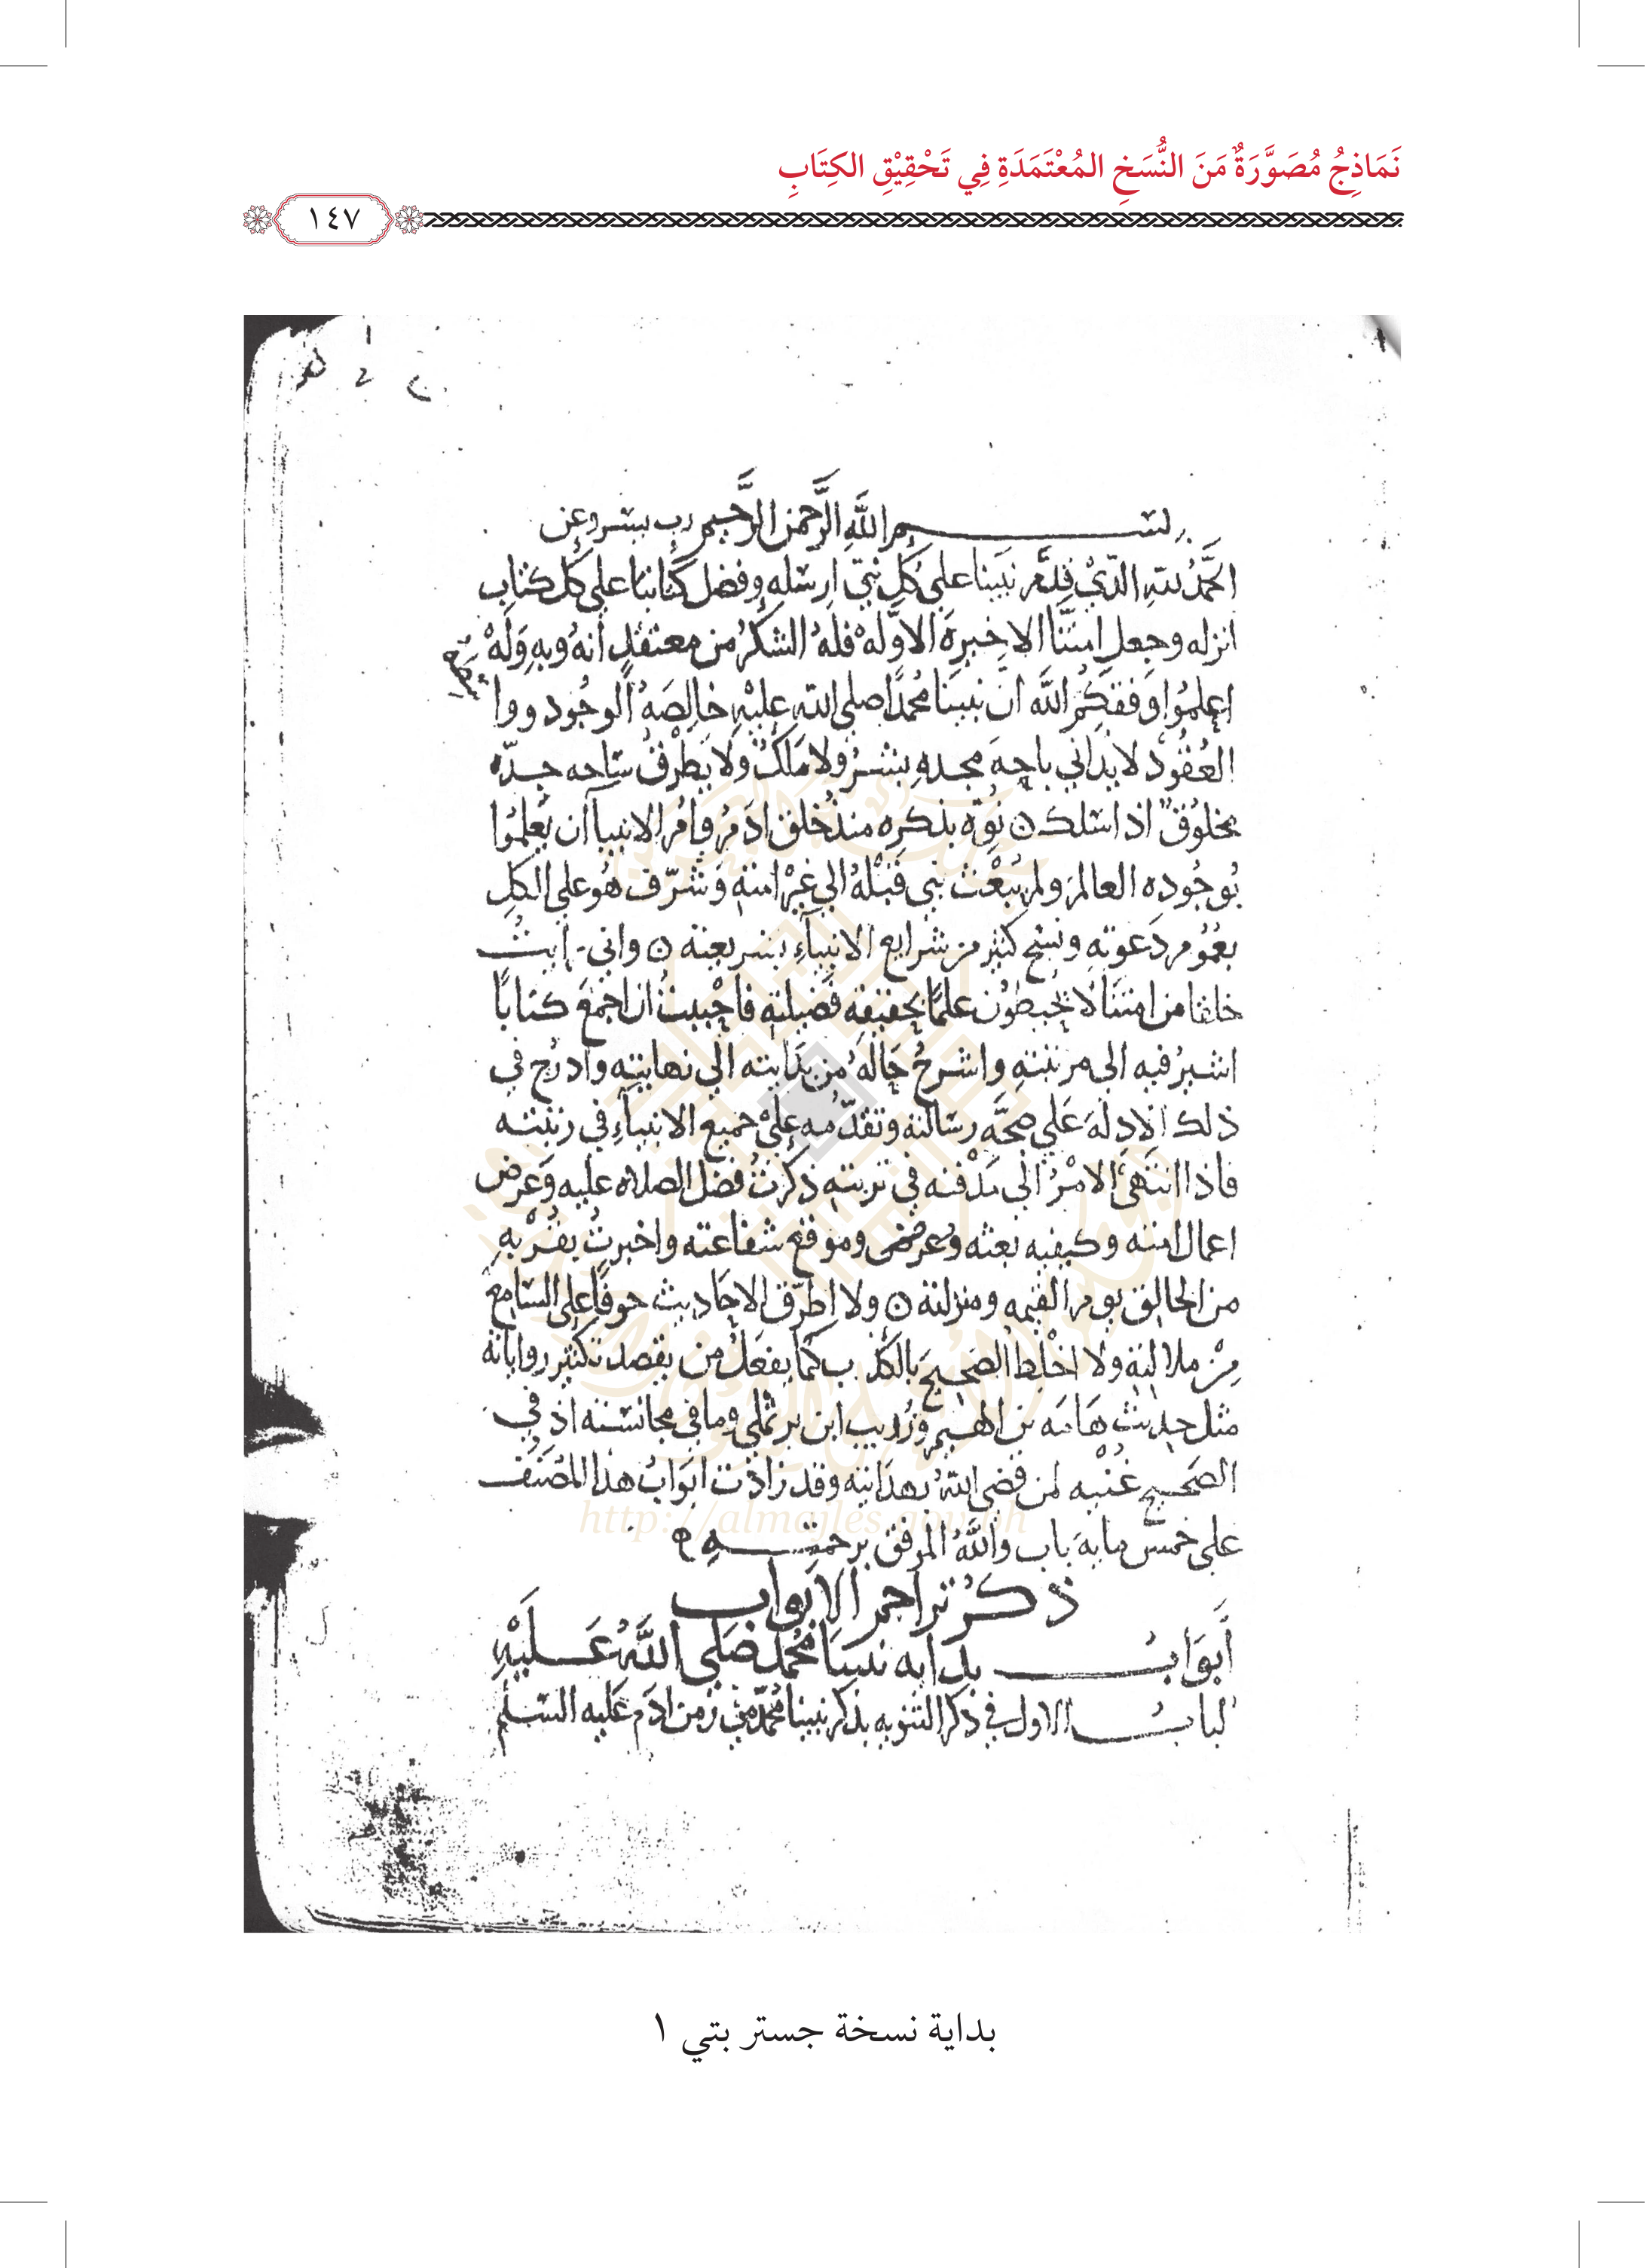 نَمَاذِجُ مُصَوَّرَةٌ مَنَ النُّسَخِ المُعْتَمَدَةِ فِي تَحْقِيْقِ الكِتَابِ
١٤٧
بسم اللَّهِ الرَّحمن الرَّحيم رب يسر وعن
الحَمْدُ للهِ الَّذي قدَّم نبينا على كُلِ نبيّ ارسَله وفضل كتابنا على كل كتاب
انزله وجعل امتنا الاخيرة الاوّله فلهُ الشكرُ من معتقد أنهُ وبه وَلَهْ
اعلمُوا وفقكمُ اللَّه انّ نبينا مُحمدًا صلى الله عليه خالصَهُ الوجُود ووا
العُقُود لا يداني باحِهَ مجده بَشرٌ ولا مَلكٌ ولا يطرْقُ ساحه جدّه
مخلوُقٌ اذا سلك ن نُوّه بذكره منذ خُلق ادمُ وامُر الانبيا أن يُعلمُوا
بوجُوده العالمَ ولم يبْعَث نبى قَبْلهُ الي غيْر امته وشرّف هُو على الكل
بعُمُوم دَعوته ونسخ كثير من شرايع الانبيآءِ بشريعته ن واني رايت
خلقا من امتنا لا يحيطوُن علمًا بحقيقة فَضيلته فاحْببتُ ان اجمعَ كتابًا
اشيرُ فيه الى مرتبته واشرحُ حَالَهُ من بدَايته الي نهايته وادرُج في
ذلك الادِلهَ عَلى صحَّه رسَالته وتقدّمه عليْ جميع الانبيآءِ في رتبته
فاذا انتهَىَ الامْرُ الى مَدْفنه في تربته ذكرتُ فضل الصلاه عليه وَعرض
اعمال امته وكيفيه بعثه وموقع شفاعته واخبرتُ بقُرْبه
من الخالق يوم القيمه ومنزلته ن ولا اطرّق الاحَاديث خوفًا على السَامع
مِنْ ملالته ولا اخلْط الصَحيحَ بالكذب كمَا يفعَلُ من يقصد تكثير رواياته
مثل حديث هَامَه بن الهيم وزُريب ابن برثملي وما في مجانسته اذ في
الصَحيح غُنْيه لمن قضى اللهُ بهدَايته وقد زادَت ابوَابُ هذا المصَنَف
على خمس مايهَ باب واللَّهُ الموفق برحمته
ذكرُ تراجم الابواب
أبوَابُ بدايه نبينا مُحمد صَلى اللَّهُ عَليْهِ
لبابُ الاول في ذكر التنويه بذكر نبينا مُحمّد من زمن ادَم عَليه السَلم
http://almajles.gov.bh
بداية نسخة جستر بتي ١